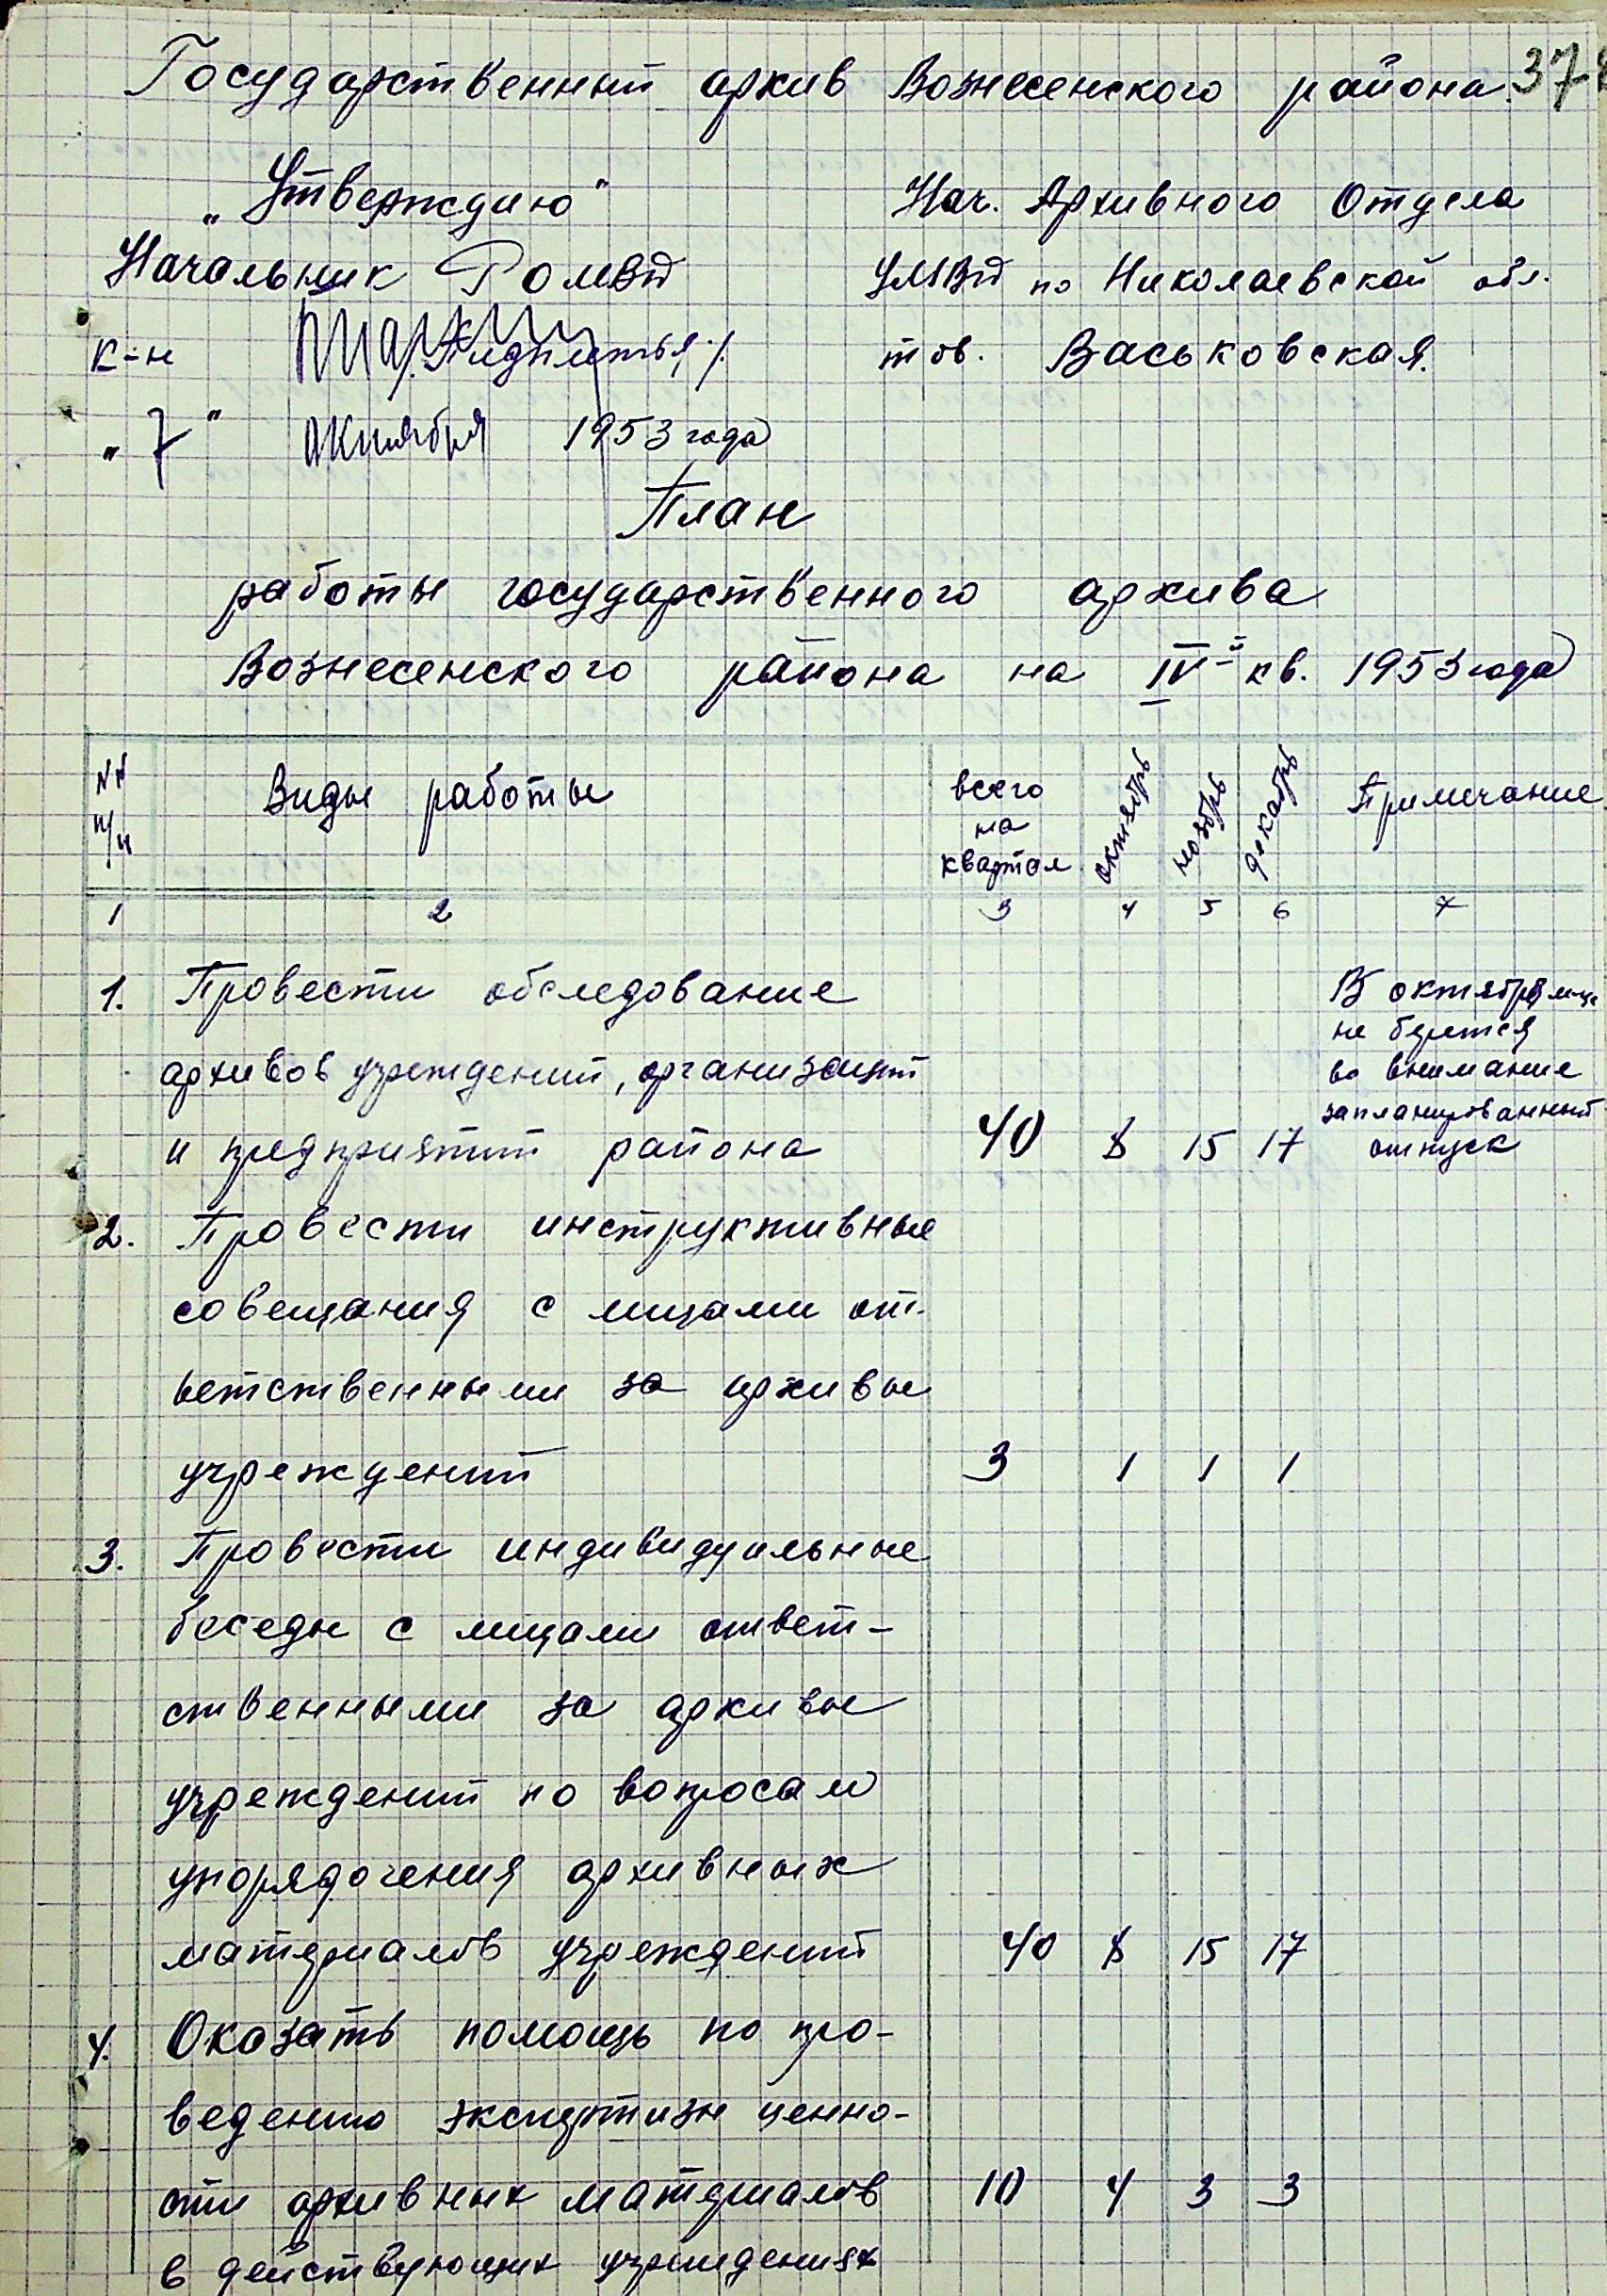 Государственный архив Вознесенского района. 37
„Утверждаю"
Начальник РОМВД
к-н
„7" октября 1953 года
Нач. Архивного Отдела
УМВД по Николаевской обл.
тов. Васьковская.
План
работы государственного архива
Вознесенского района на IV-й кв. 1953 года
NN
п/п
Виды работы
всего
на
квартал
октябрь
ноябрь
декабрь
Примечание
1 2 3 4 5 6 7
1. Провести обследование
архивов учреждений, организаций
и предприятий района 40 8 15 17
В октябре м-це
не берется
во внимание
запланированный
отпуск
2. Провести инструктивные
совещания с лицами от-
ветственными за архивы
учреждений 3 1 1 1
3. Провести индивидуальные
беседы с лицами ответ-
ственными за архивы
учреждений по вопросам
упорядочения архивных
материалов учреждений 40 8 15 17
4. Оказать помощь по про-
ведению экспертизы ценно-
сти архивных материалов 10 4 3 3
в действующих учреждениях